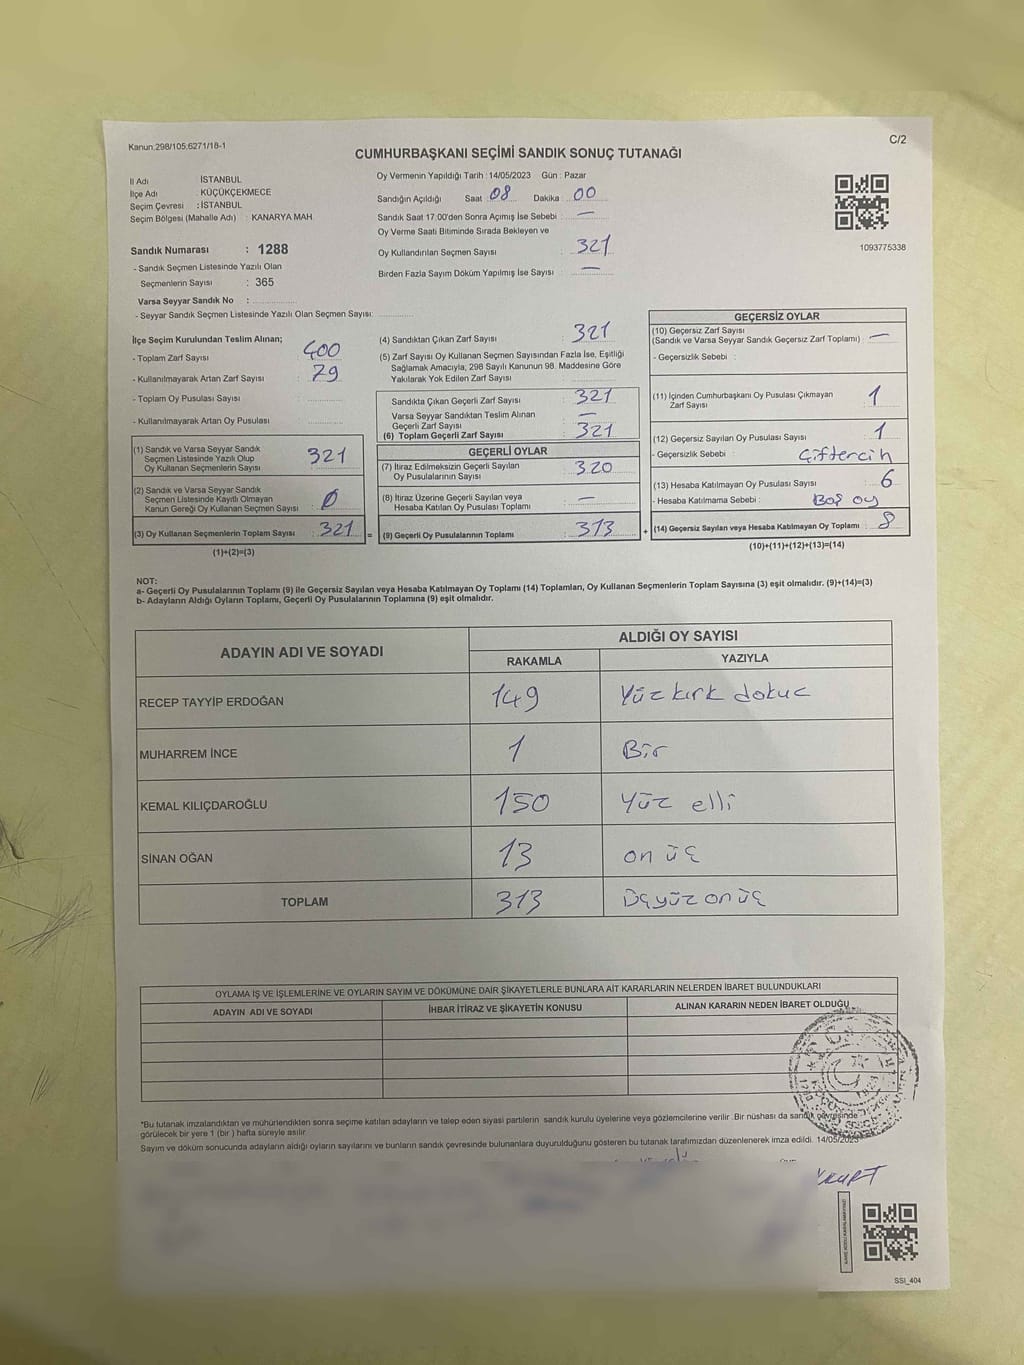 Kanun:298/105;6271/18-1
C/2
CUMHURBAŞKANI SEÇİMİ SANDIK SONUÇ TUTANAĞI
İl Adı : İSTANBUL
İlçe Adı : KÜÇÜKÇEKMECE
Seçim Çevresi : İSTANBUL
Seçim Bölgesi (Mahalle Adı) : KANARYA MAH
Sandık Numarası : 1288
- Sandık Seçmen Listesinde Yazılı Olan
Seçmenlerin Sayısı : 365
Varsa Seyyar Sandık No :
- Seyyar Sandık Seçmen Listesinde Yazılı Olan Seçmen Sayısı:
Oy Vermenin Yapıldığı Tarih : 14/05/2023 Gün : Pazar
Sandığın Açıldığı Saat : 08 Dakika : 00
Sandık Saat 17.00'den Sonra Açımış İse Sebebi : —
Oy Verme Saati Bitiminde Sırada Bekleyen ve
Oy Kullandırılan Seçmen Sayısı : 321
Birden Fazla Sayım Döküm Yapılmış İse Sayısı : —
1093775338
İlçe Seçim Kurulundan Teslim Alınan;
- Toplam Zarf Sayısı : 400
- Kullanılmayarak Artan Zarf Sayısı : 79
- Toplam Oy Pusulası Sayısı :
- Kullanılmayarak Artan Oy Pusulası :
(1) Sandık ve Varsa Seyyar Sandık
Seçmen Listesinde Yazılı Olup
Oy Kullanan Seçmenlerin Sayısı : 321
(2) Sandık ve Varsa Seyyar Sandık
Seçmen Listesinde Kayıtlı Olmayan
Kanun Gereği Oy Kullanan Seçmen Sayısı : 0
(3) Oy Kullanan Seçmenlerin Toplam Sayısı : 321 =
(1)+(2)=(3)
(4) Sandıktan Çıkan Zarf Sayısı : 321
(5) Zarf Sayısı Oy Kullanan Seçmen Sayısından Fazla İse, Eşitliği
Sağlamak Amacıyla, 298 Sayılı Kanunun 98. Maddesine Göre
Yakılarak Yok Edilen Zarf Sayısı :
Sandıkta Çıkan Geçerli Zarf Sayısı : 321
Varsa Seyyar Sandıktan Teslim Alınan
Geçerli Zarf Sayısı : —
(6) Toplam Geçerli Zarf Sayısı : 321
GEÇERLİ OYLAR
(7) İtiraz Edilmeksizin Geçerli Sayılan
Oy Pusulalarının Sayısı : 320
(8) İtiraz Üzerine Geçerli Sayılan veya
Hesaba Katılan Oy Pusulası Toplamı : —
(9) Geçerli Oy Pusulalarının Toplamı : 313 +
GEÇERSİZ OYLAR
(10) Geçersiz Zarf Sayısı
(Sandık ve Varsa Seyyar Sandık Geçersiz Zarf Toplamı) : —
- Geçersizlik Sebebi :
(11) İçinden Cumhurbaşkanı Oy Pusulası Çıkmayan
Zarf Sayısı : 1
(12) Geçersiz Sayılan Oy Pusulası Sayısı : 1
- Geçersizlik Sebebi : Çiftercih
(13) Hesaba Katılmayan Oy Pusulası Sayısı : 6
- Hesaba Katılmama Sebebi : Boş oy
(14) Geçersiz Sayılan veya Hesaba Katılmayan Oy Toplamı : 8
(10)+(11)+(12)+(13)=(14)
NOT:
a- Geçerli Oy Pusulalarının Toplamı (9) ile Geçersiz Sayılan veya Hesaba Katılmayan Oy Toplamı (14) Toplamları, Oy Kullanan Seçmenlerin Toplam Sayısına (3) eşit olmalıdır. (9)+(14)=(3)
b- Adayların Aldığı Oyların Toplamı, Geçerli Oy Pusulalarının Toplamına (9) eşit olmalıdır.
ADAYIN ADI VE SOYADI
ALDIĞI OY SAYISI
RAKAMLA YAZIYLA
RECEP TAYYİP ERDOĞAN 149 Yüz kırk dokuc
MUHARREM İNCE 1 Bir
KEMAL KILIÇDAROĞLU 150 Yüz elli
SİNAN OĞAN 13 on üç
TOPLAM 313 Üçyüz onüç
OYLAMA İŞ VE İŞLEMLERİNE VE OYLARIN SAYIM VE DÖKÜMÜNE DAİR ŞİKAYETLERLE BUNLARA AİT KARARLARIN NELERDEN İBARET BULUNDUKLARI
ADAYIN ADI VE SOYADI İHBAR İTİRAZ VE ŞİKAYETİN KONUSU ALINAN KARARIN NEDEN İBARET OLDUĞU
*Bu tutanak imzalandıktan ve mühürlendikten sonra seçime katılan adayların ve talep eden siyasi partilerin sandık kurulu üyelerine veya gözlemcilerine verilir .Bir nüshası da sandık çevresinde
görülecek bir yere 1 (bir ) hafta süreyle asılır
Sayım ve döküm sonucunda adayların aldığı oyların sayılarını ve bunların sandık çevresinde bulunanlara duyurulduğunu gösteren bu tutanak tarafımızdan düzenlenerek imza edildi. 14/05/2023
SSI_404